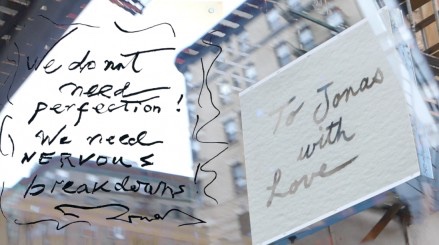 We do not
need
perfection!
We need
NERVOUS
breakdowns
Jonas
To Jonas
with
Love